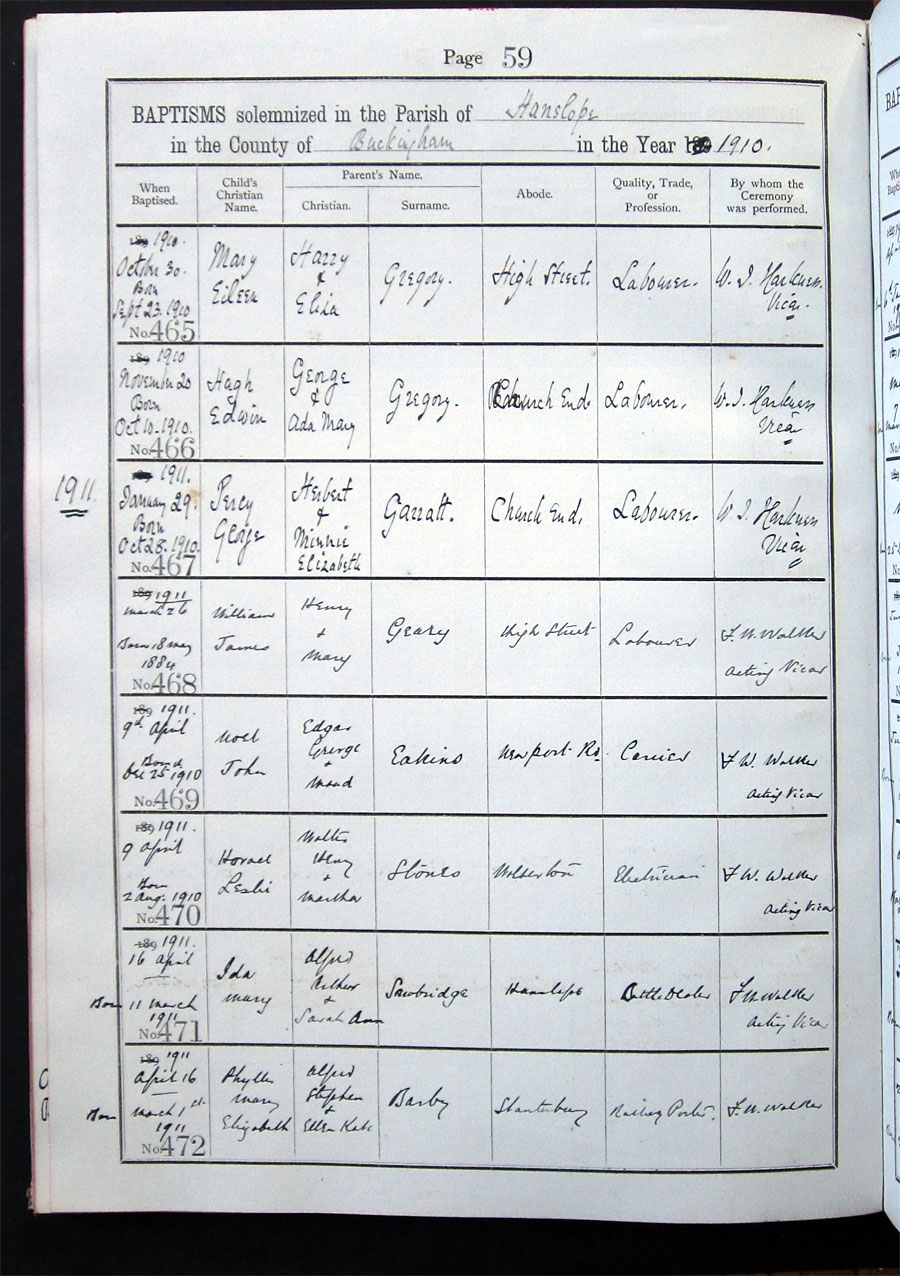 Page 59
BAPTISMS solemnized in the Parish of Hanslope
in the County of Buckingham in the Year 189 1910.
When Baptised. Child's Christian Name. Parent's Name. Christian. Surname. Abode. Quality, Trade, or Profession. By whom the Ceremony was performed.
189 1910.
October 30.
Born
Sept 23. 1910
No. 465
Mary
Eileen
Harry
&
Eliza
Gregory.
High Street.
Labourer.
W. J. Harkness.
Vicar.
189 1910
November 20
Born
Oct 10. 1910.
No. 466
Hugh
Edwin
George
&
Ada Mary
Gregory.
Church End.
Labourer.
W. J. Harkness
Vicar
1911
1911.
January 29.
Born
Oct 28. 1910.
No. 467
Percy
George
Herbert
&
Minnie
Elizabeth
Garratt.
Church End.
Labourer.
W. J. Harkness
Vicar
189 1911
March 26
Born 18 May
1884
No. 468
William
James
Henry
&
Mary
Geary
High Street
Labourer
F. W. Walker
Acting Vicar
189 1911.
9th April
Born
Dec 25 1910
No. 469
Noel
John
Edgar
George
&
Maud
Eakins
Newport Rd.
Carrier
F. W. Walker
Acting Vicar
189 1911.
9 April
Born
2 Aug. 1910
No. 470
Horace
Leslie
Walter
Henry
&
Martha
Stones
Wolverton
Electrician
F. W. Walker
Acting Vicar
189 1911.
16 April
Born 11 March
1911
No. 471
Ida
Mary
Alfred
Arthur
&
Sarah Ann
Sawbridge
Hanslope
Cattle Dealer
F. W. Walker
Acting Vicar
189 1911
April 16
Born March 1st
1911
No. 472
Phyllis
Mary
Elizabeth
Alfred
Stephen
&
Ellen Kate
Barby
Railway Porter.
F. W. Walker